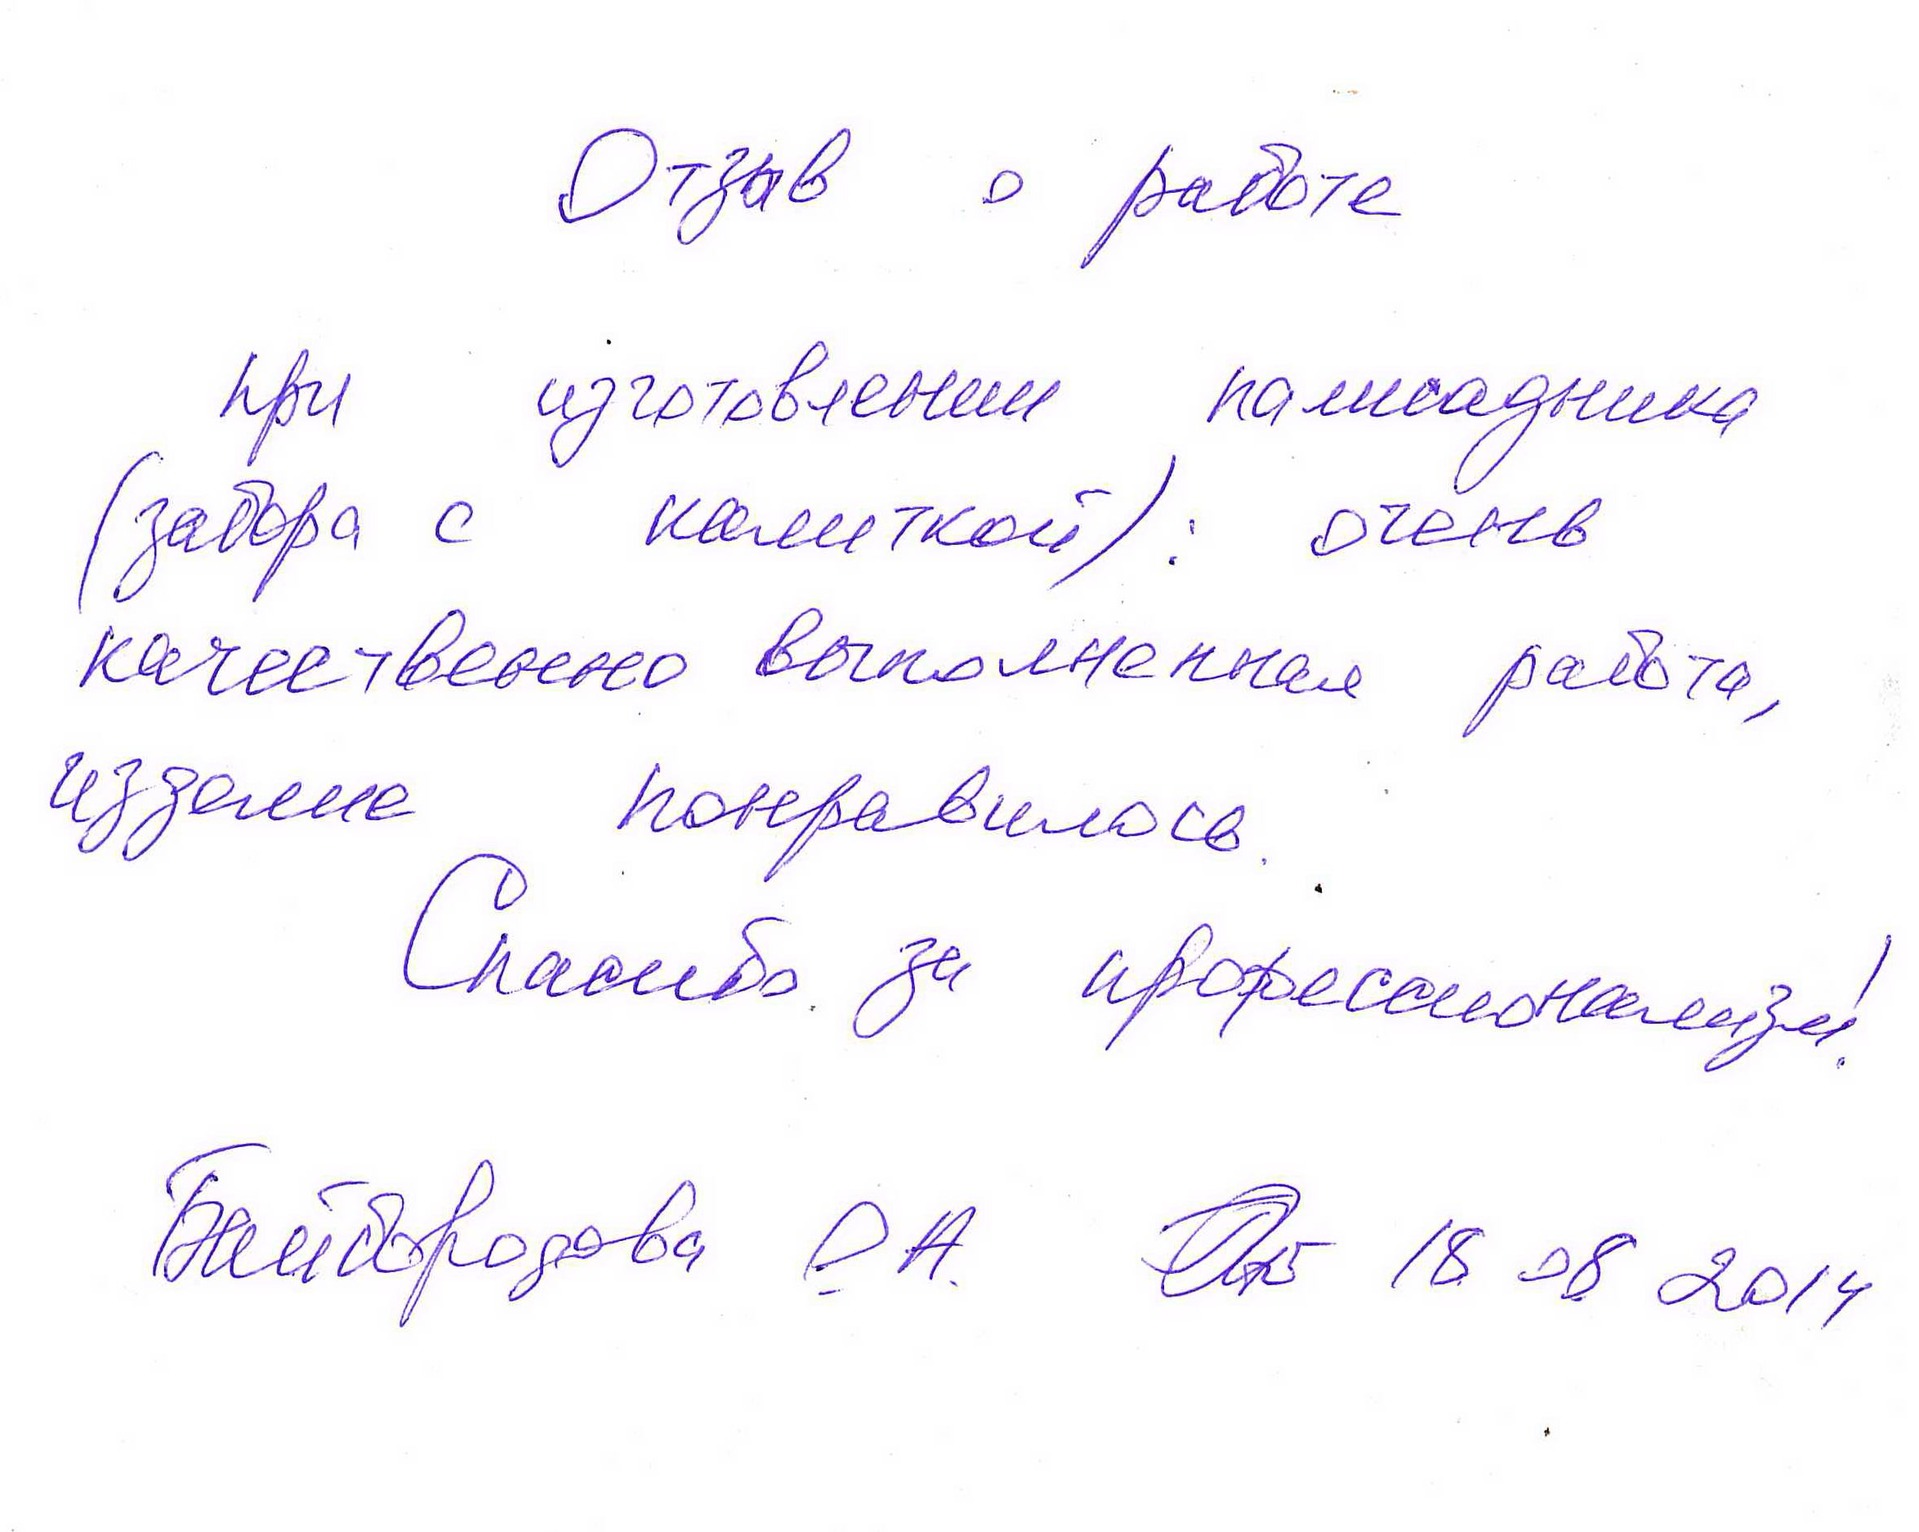 Отзыв о работе
при изготовлении палисадника
(забора с калиткой): очень
качественно выполненная работа,
изделие понравилось.
Спасибо за профессионализм!
Байбородова О.А. 18.08.2014